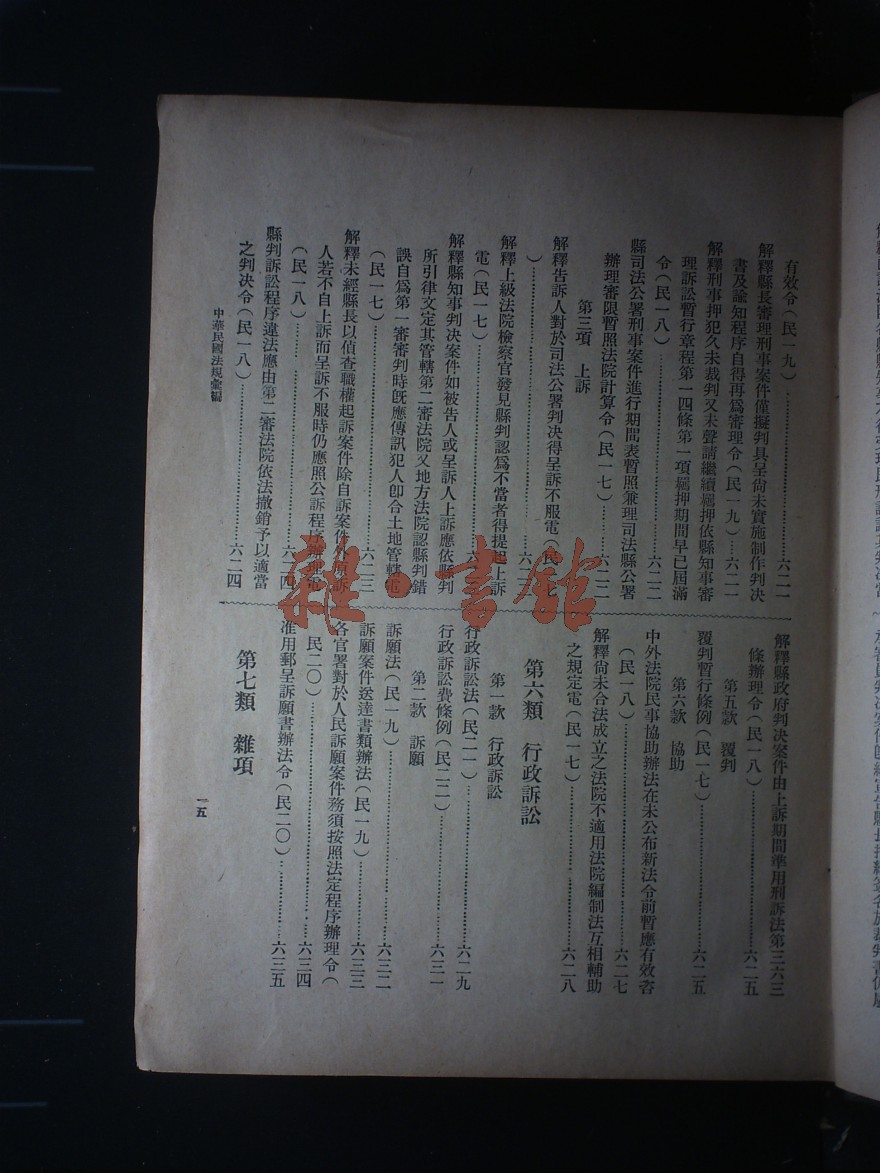 有效令(民一九)……六二一
解釋縣長審理刑事案件僅擬判具呈尚未實施制作判決
書及諭知程序自得再爲審理令(民一九)……六二一
解釋刑事押犯久未裁判又未聲請繼續羈押依縣知事審
理訴訟暫行章程第一四條第一項羈押期間早已屆滿
令(民一八)……六二二
縣司法公署刑事案件進行期間表暫照兼理司法縣公署
辦理審限暫照法院計算令(民一七)……六二二
第三項 上訴
解釋告訴人對於司法公署判決得呈訴不服電(民一七
)……六
解釋上級法院檢察官發見縣判認爲不當者得提起上訴
電(民一七)……六
解釋縣知事判決案件如被告人或呈訴人上訴應依縣判
所引律文定其管轄第二審法院又地方法院認縣判錯
誤自爲第一審審判時既應傳訊犯人卽合土地管轄電
(民一七)……六二三
解釋未經縣長以偵查職權起訴案件除自訴案件外原訴
人若不自上訴而呈訴不服時仍應照公訴程序辦理電
(民一八)……六二四
縣判訴訟程序違法應由第二審法院依法撤銷予以適當
之判決令(民一八)……六二四
中華民國法規彙編
解釋縣政府判決案件由上訴期間準用刑訴法第三六三
條辦理令(民一八)……六二五
第五款 覆判
覆判暫行條例(民一七)……六二五
第六款 協助
中外法院民事協助辦法在未公布新法令前暫應有效咨
(民一八)……六二七
解釋尚未合法成立之法院不適用法院編制法互相輔助
之規定電(民一七)……六二八
第六類 行政訴訟
第一款 行政訴訟
行政訴訟法(民二一)……六二九
行政訴訟費條例(民二二)……六三一
第二款 訴願
訴願法(民一九)……六三二
訴願案件送達書類辦法(民一九)……六三三
各官署對於人民訴願案件務須按照法定程序辦理令(
民二〇)……六三四
准用郵呈訴願書辦法令(民二〇)……六三五
第七類 雜項
一五
雜·書館